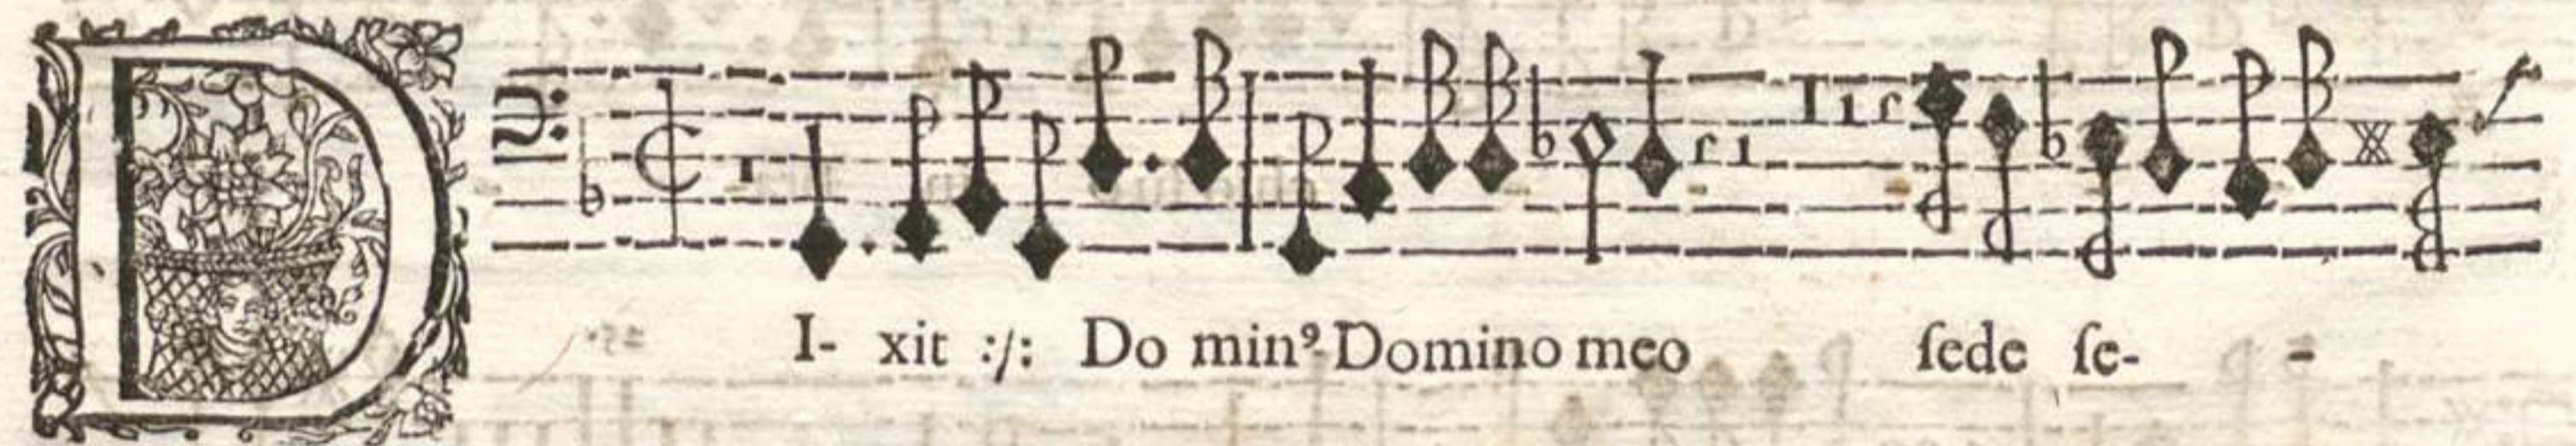 DI- xit :/: Do min⁹ Domino meo ſede ſe- -